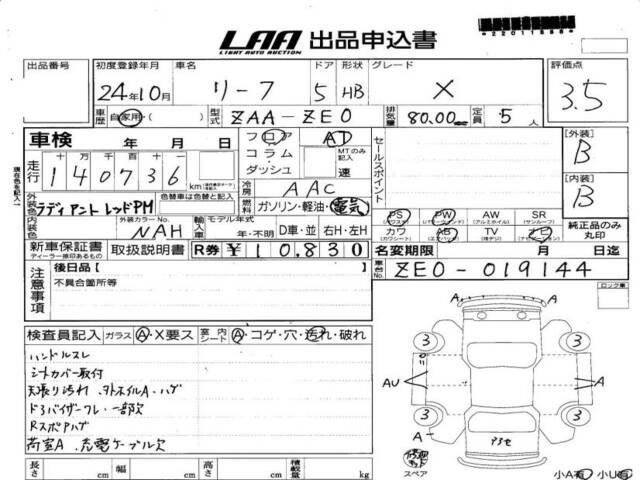 LAA 出品申込書
LIGHT AUTO AUCTION
*22011888*
出品番号 初度登録年月 車名 ドア 形状 グレード 評価点
24年10月 リーフ 5 HB X 3.5
車歴 自家用・( ) 型式 ZAA-ZE0 排気量 80.00 定員 5人
車検 年 月 日 フロア AT [外装]
コラム・ MTのみ記入 B
ダッシュ 速 セールスポイント
走行 十 万 千 百 十 一
140736 km 冷房 AAC [内装]
B
現在色を記入
外装色 色替車は色替と記入
ラディアントレッドPM 燃料 ガソリン・軽油・電気 PS PW AW SR
(パワステ) (アルミホイル) (サンルーフ)
内装色 外装カラーNo. NAH 輸入車 モデル年式 年・不明 D車・並 右H・左H カワ AB TV ナビ
(カワシート) (エアバック) 純正品のみ丸印
新車保証書 取扱説明書 R券 ¥10,830 名変期限 月 日迄
ディーラー捺印あるもの
車台No. ZE0-019144
注意事項 後日品[ ]
不具合箇所等
ロック車
検査員記入 ガラス A・X要ス 室内シート A・コゲ・穴・汚れ・破れ
ハンドルスレ
シートカバー取付
天張り汚れ
ドアバイザーワレ・一部欠
RスポアPハゲ
荷室A 充電ケーブル欠
A A
3 3
AU A
3 3
A
修理キット
スペア
小A有 小U有
長さ cm 幅 cm 高さ cm 積載量 kg